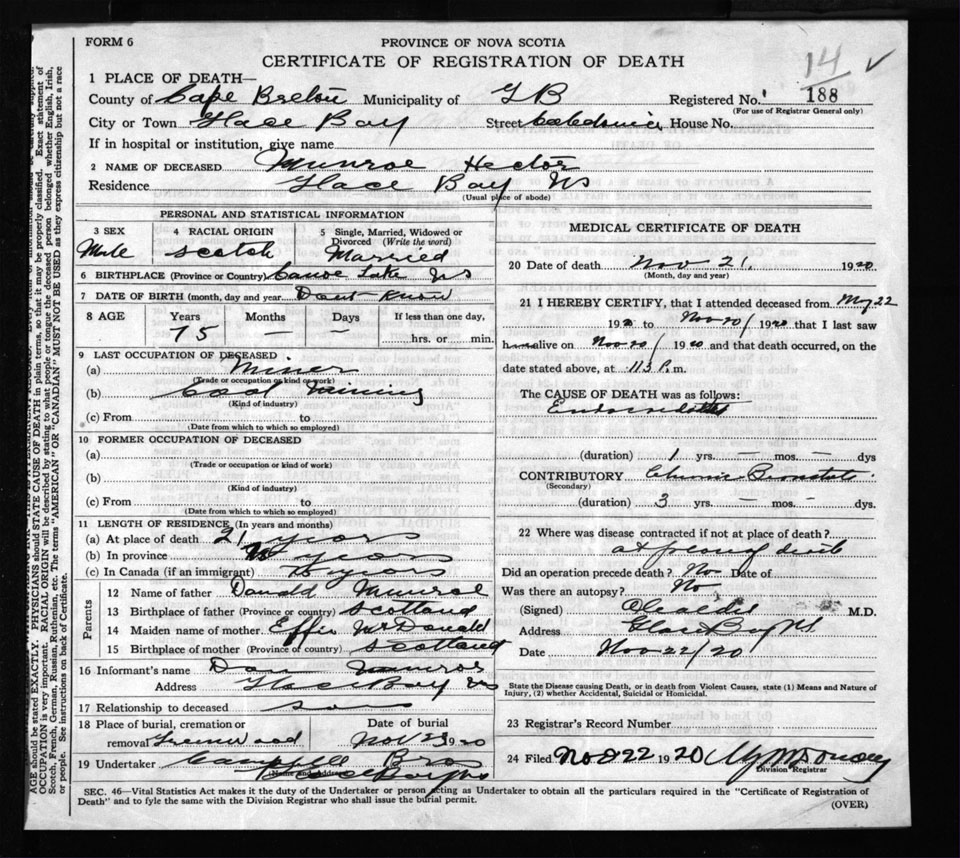 FORM 6
PROVINCE OF NOVA SCOTIA
CERTIFICATE OF REGISTRATION OF DEATH
14
1 PLACE OF DEATH—
County of Cape Breton Municipality of G B Registered No. 188
(For use of Registrar General only)
City or Town Glace Bay Street Caledonia House No.
If in hospital or institution, give name
2 NAME OF DECEASED Munroe Hector
Residence Glace Bay NS
(Usual place of abode)
PERSONAL AND STATISTICAL INFORMATION
3 SEX
Male
4 RACIAL ORIGIN
Scotch
5 Single, Married, Widowed or Divorced (Write the word)
Married
6 BIRTHPLACE (Province or Country) Canoe Lake NS
7 DATE OF BIRTH (month, day and year Dont Know
8 AGE Years Months Days If less than one day,
75 — — hrs. or min.
9 LAST OCCUPATION OF DECEASED
(a) Miner
(Trade or occupation or kind or work)
(b) Coal Mining
(Kind of industry)
(c) From to
(Date from which to which so employed)
10 FORMER OCCUPATION OF DECEASED
(a)
(Trade or occupation or kind of work)
(b)
(Kind of industry)
(c) From to
(Date from which to which so employed)
11 LENGTH OF RESIDENCE (In years and months)
(a) At place of death 21 years
(b) In province years
(c) In Canada (if an immigrant) years
Parents
12 Name of father Donald Munroe
13 Birthplace of father (Province or country) Scotland
14 Maiden name of mother Effie McDonald
15 Birthplace of mother (Province or country) Scotland
16 Informant's name Dan Munroe
Address Glace Bay NS
17 Relationship to deceased son
18 Place of burial, cremation or removal Greenwood
Date of burial Nov 23 1920
19 Undertaker Campbell Bros
(Name and Address) Glace Bay NS
MEDICAL CERTIFICATE OF DEATH
20 Date of death Nov 21, 1920
(Month, day and year)
21 I HEREBY CERTIFY, that I attended deceased from May 22
1920 to Nov 20/ 1920 that I last saw
h alive on Nov 20/ 1920 and that death occurred, on the
date stated above, at P.m.
The CAUSE OF DEATH was as follows:
Endocarditis
(duration) 1 yrs. — mos. — dys
CONTRIBUTORY Chronic Bronchitis
(Secondary)
(duration) 3 yrs. — mos. — dys.
22 Where was disease contracted if not at place of death?
at place of death
Did an operation precede death? No Date of
Was there an autopsy? No
(Signed) M.D.
Address Glace Bay NS
Date Nov 22/20
State the Disease causing Death, or in death from Violent Causes, state (1) Means and Nature of Injury, (2) whether Accidental, Suicidal or Homicidal.
23 Registrar's Record Number
24 Filed Nov 22 1920
Division Registrar
SEC. 46—Vital Statistics Act makes it the duty of the Undertaker or person acting as Undertaker to obtain all the particulars required in the "Certificate of Registration of
Death" and to fyle the same with the Division Registrar who shall issue the burial permit.
(OVER)
AGE should be stated EXACTLY. PHYSICIANS should STATE CAUSE OF DEATH in plain terms, so that it may be properly classified. Exact statement of
OCCUPATION is very important. RACIAL ORIGIN will be described by stating to what people or tongue the deceased person belonged whether English, Irish,
Scotch, French, German, Russian, Ruthenian, etc. The terms "AMERICAN" OR "CANADIAN" MUST NOT BE USED as they express citizenship but not a race
or people. See instructions on back of Certificate.